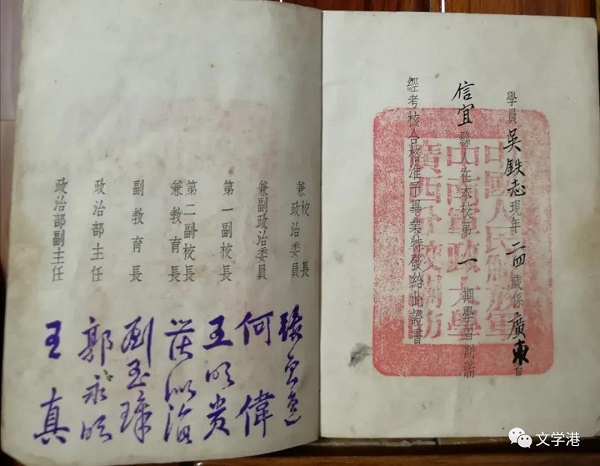 學員吳鉄志現年二四歲係廣東省
信宜縣人在本校第一期學習期滿
經考核合格准予畢業特發給此證書
中國人民解放軍
中南軍政大學
廣西分校關防
校長
兼政治委員 張雲逸
兼副政治委員 何偉
第一副校長 王明贵
第二副校長
兼教育長 海
副教育長 玉璋
政治部主任 郭永
政治部副主任 王真
文学港